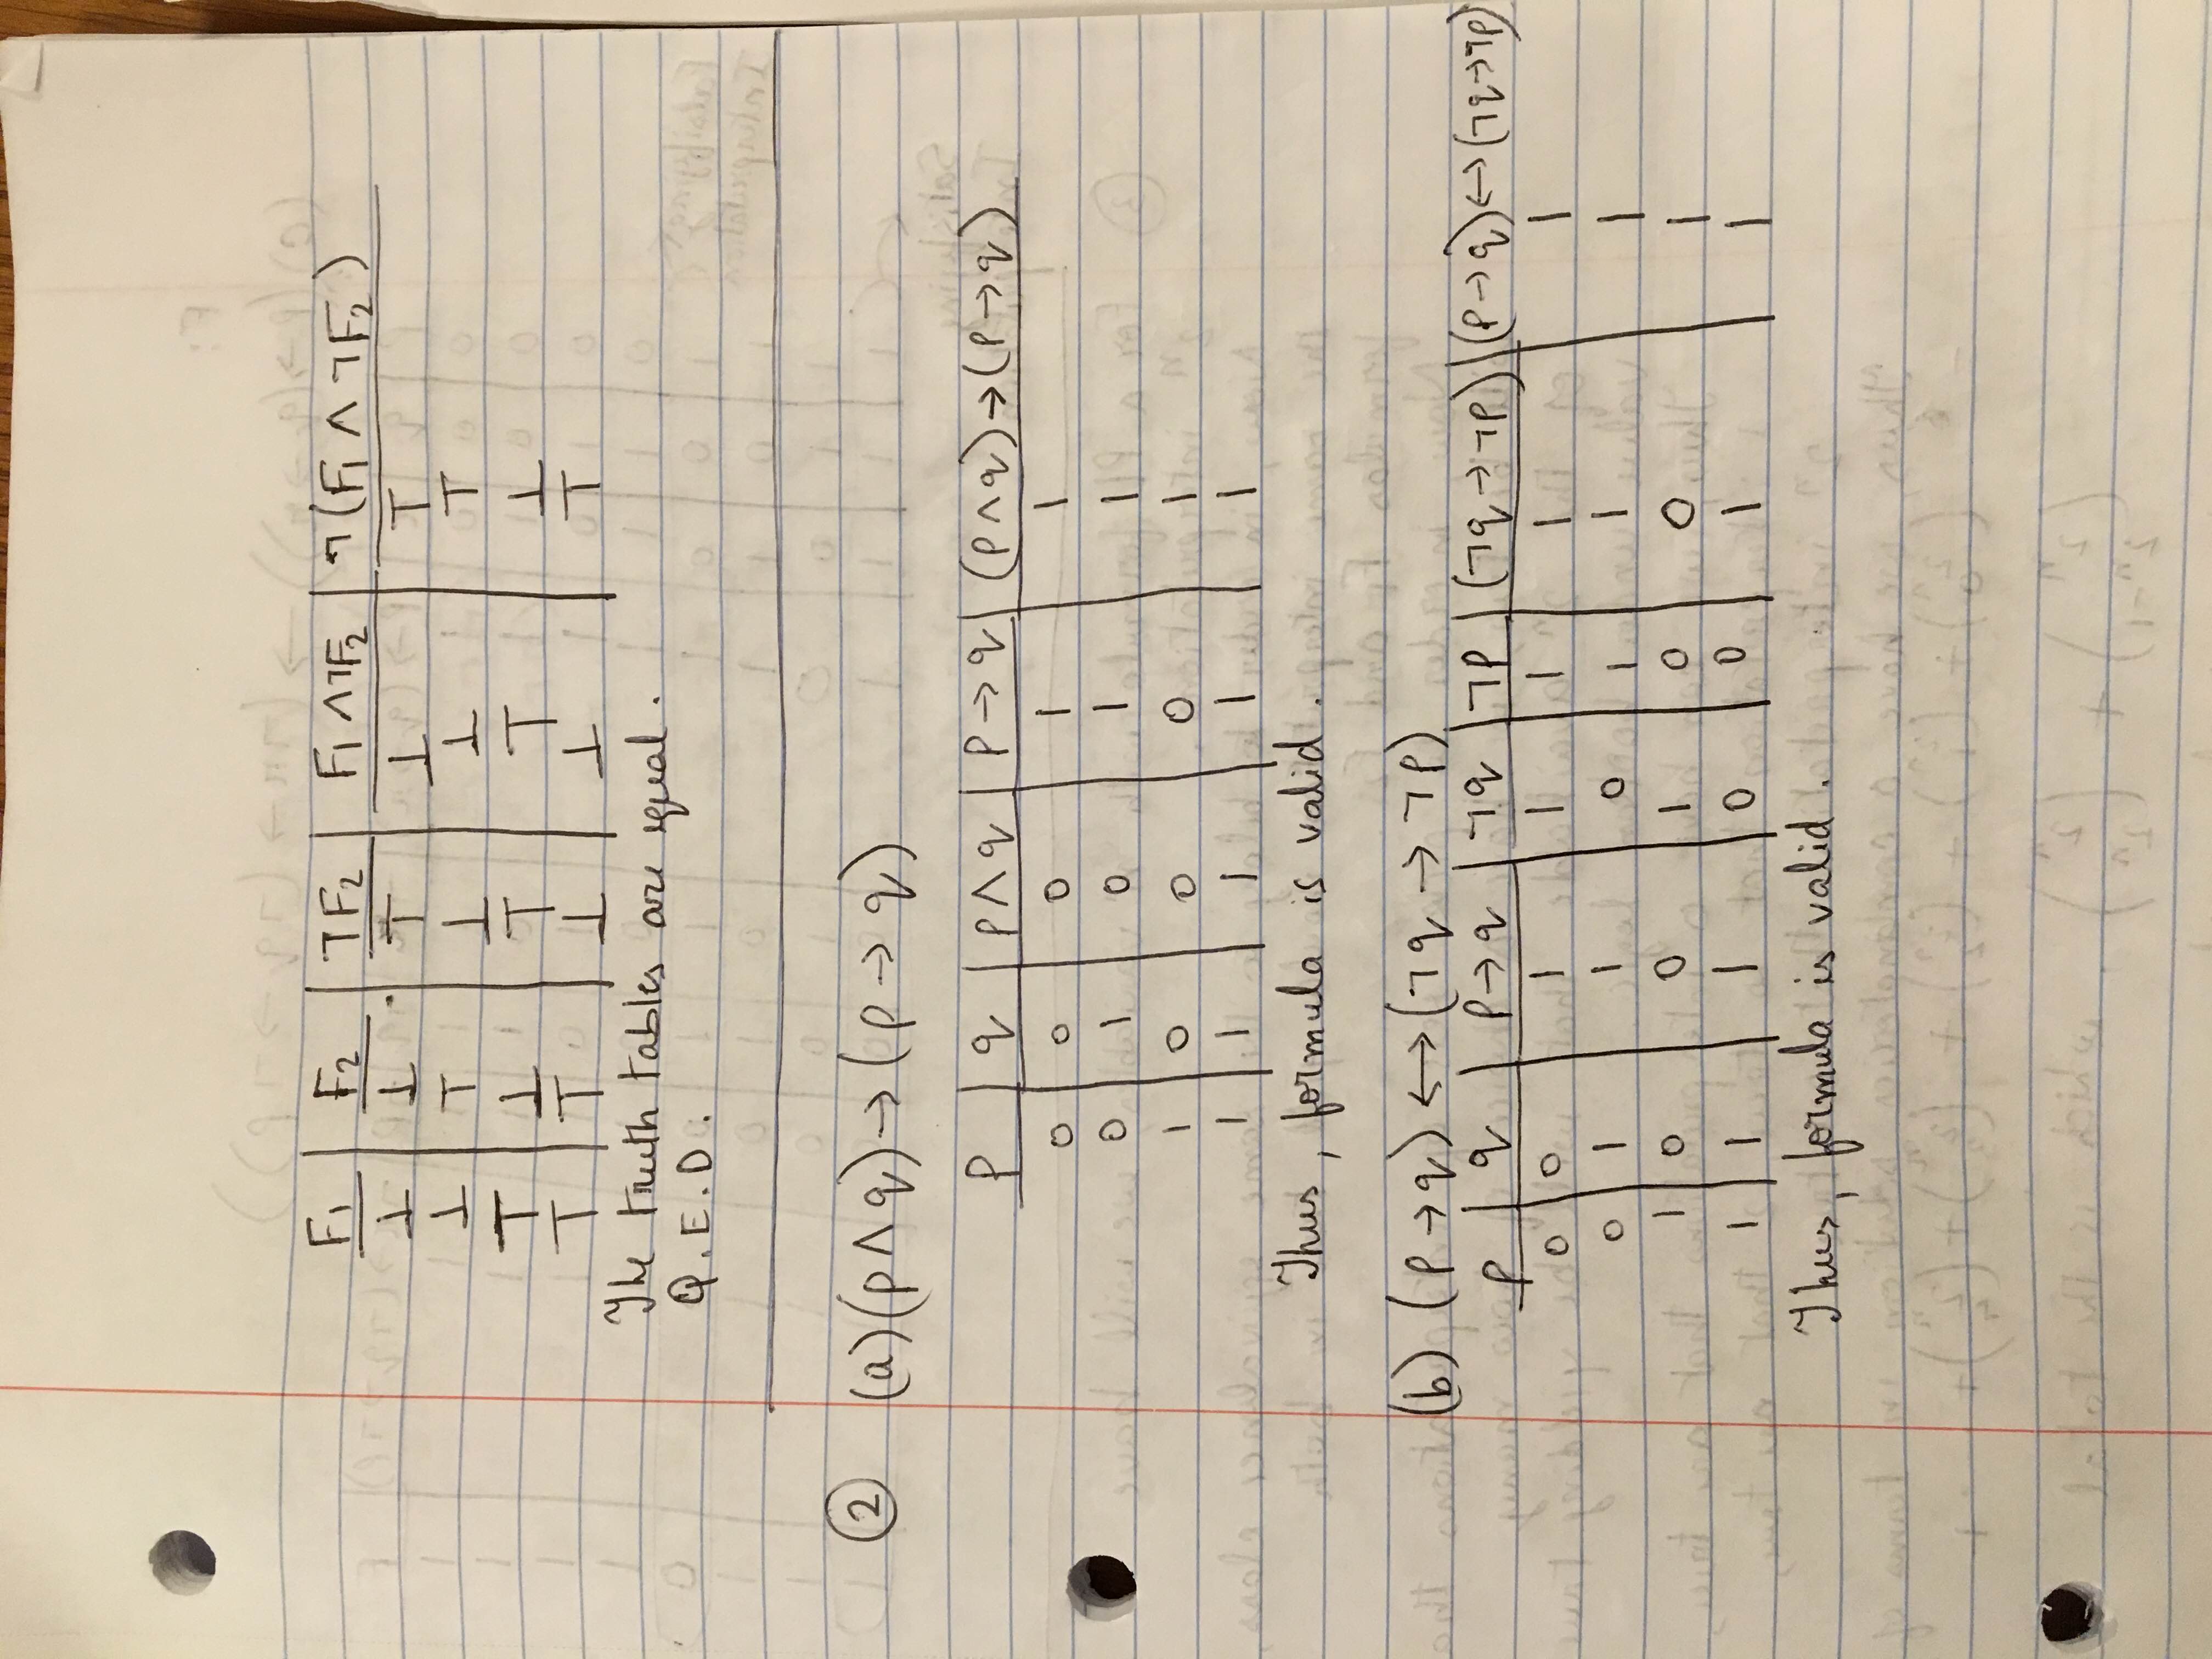 F₁ | F₂ | ¬F₂ | F₁ ∧ ¬F₂ | ¬(F₁ ∧ ¬F₂)
⊥ | ⊥ | ⊤ | ⊥ | ⊤
⊥ | ⊤ | ⊥ | ⊥ | ⊤
⊤ | ⊥ | ⊤ | ⊤ | ⊥
⊤ | ⊤ | ⊥ | ⊥ | ⊤
The truth tables are equal.
Q.E.D.
② (a) (p ∧ q) → (p → q)
p | q | p ∧ q | p → q | (p ∧ q) → (p → q)
0 | 0 | 0 | 1 | 1
0 | 1 | 0 | 1 | 1
1 | 0 | 0 | 0 | 1
1 | 1 | 1 | 1 | 1
Thus, formula is valid.
(b) (p → q) ↔ (¬q → ¬p)
p | q | p → q | ¬q | ¬p | (¬q → ¬p) | (p → q) ↔ (¬q → ¬p)
0 | 0 | 1 | 1 | 1 | 1 | 1
0 | 1 | 1 | 0 | 1 | 1 | 1
1 | 0 | 0 | 1 | 0 | 0 | 1
1 | 1 | 1 | 0 | 0 | 1 | 1
Thus, formula is valid.